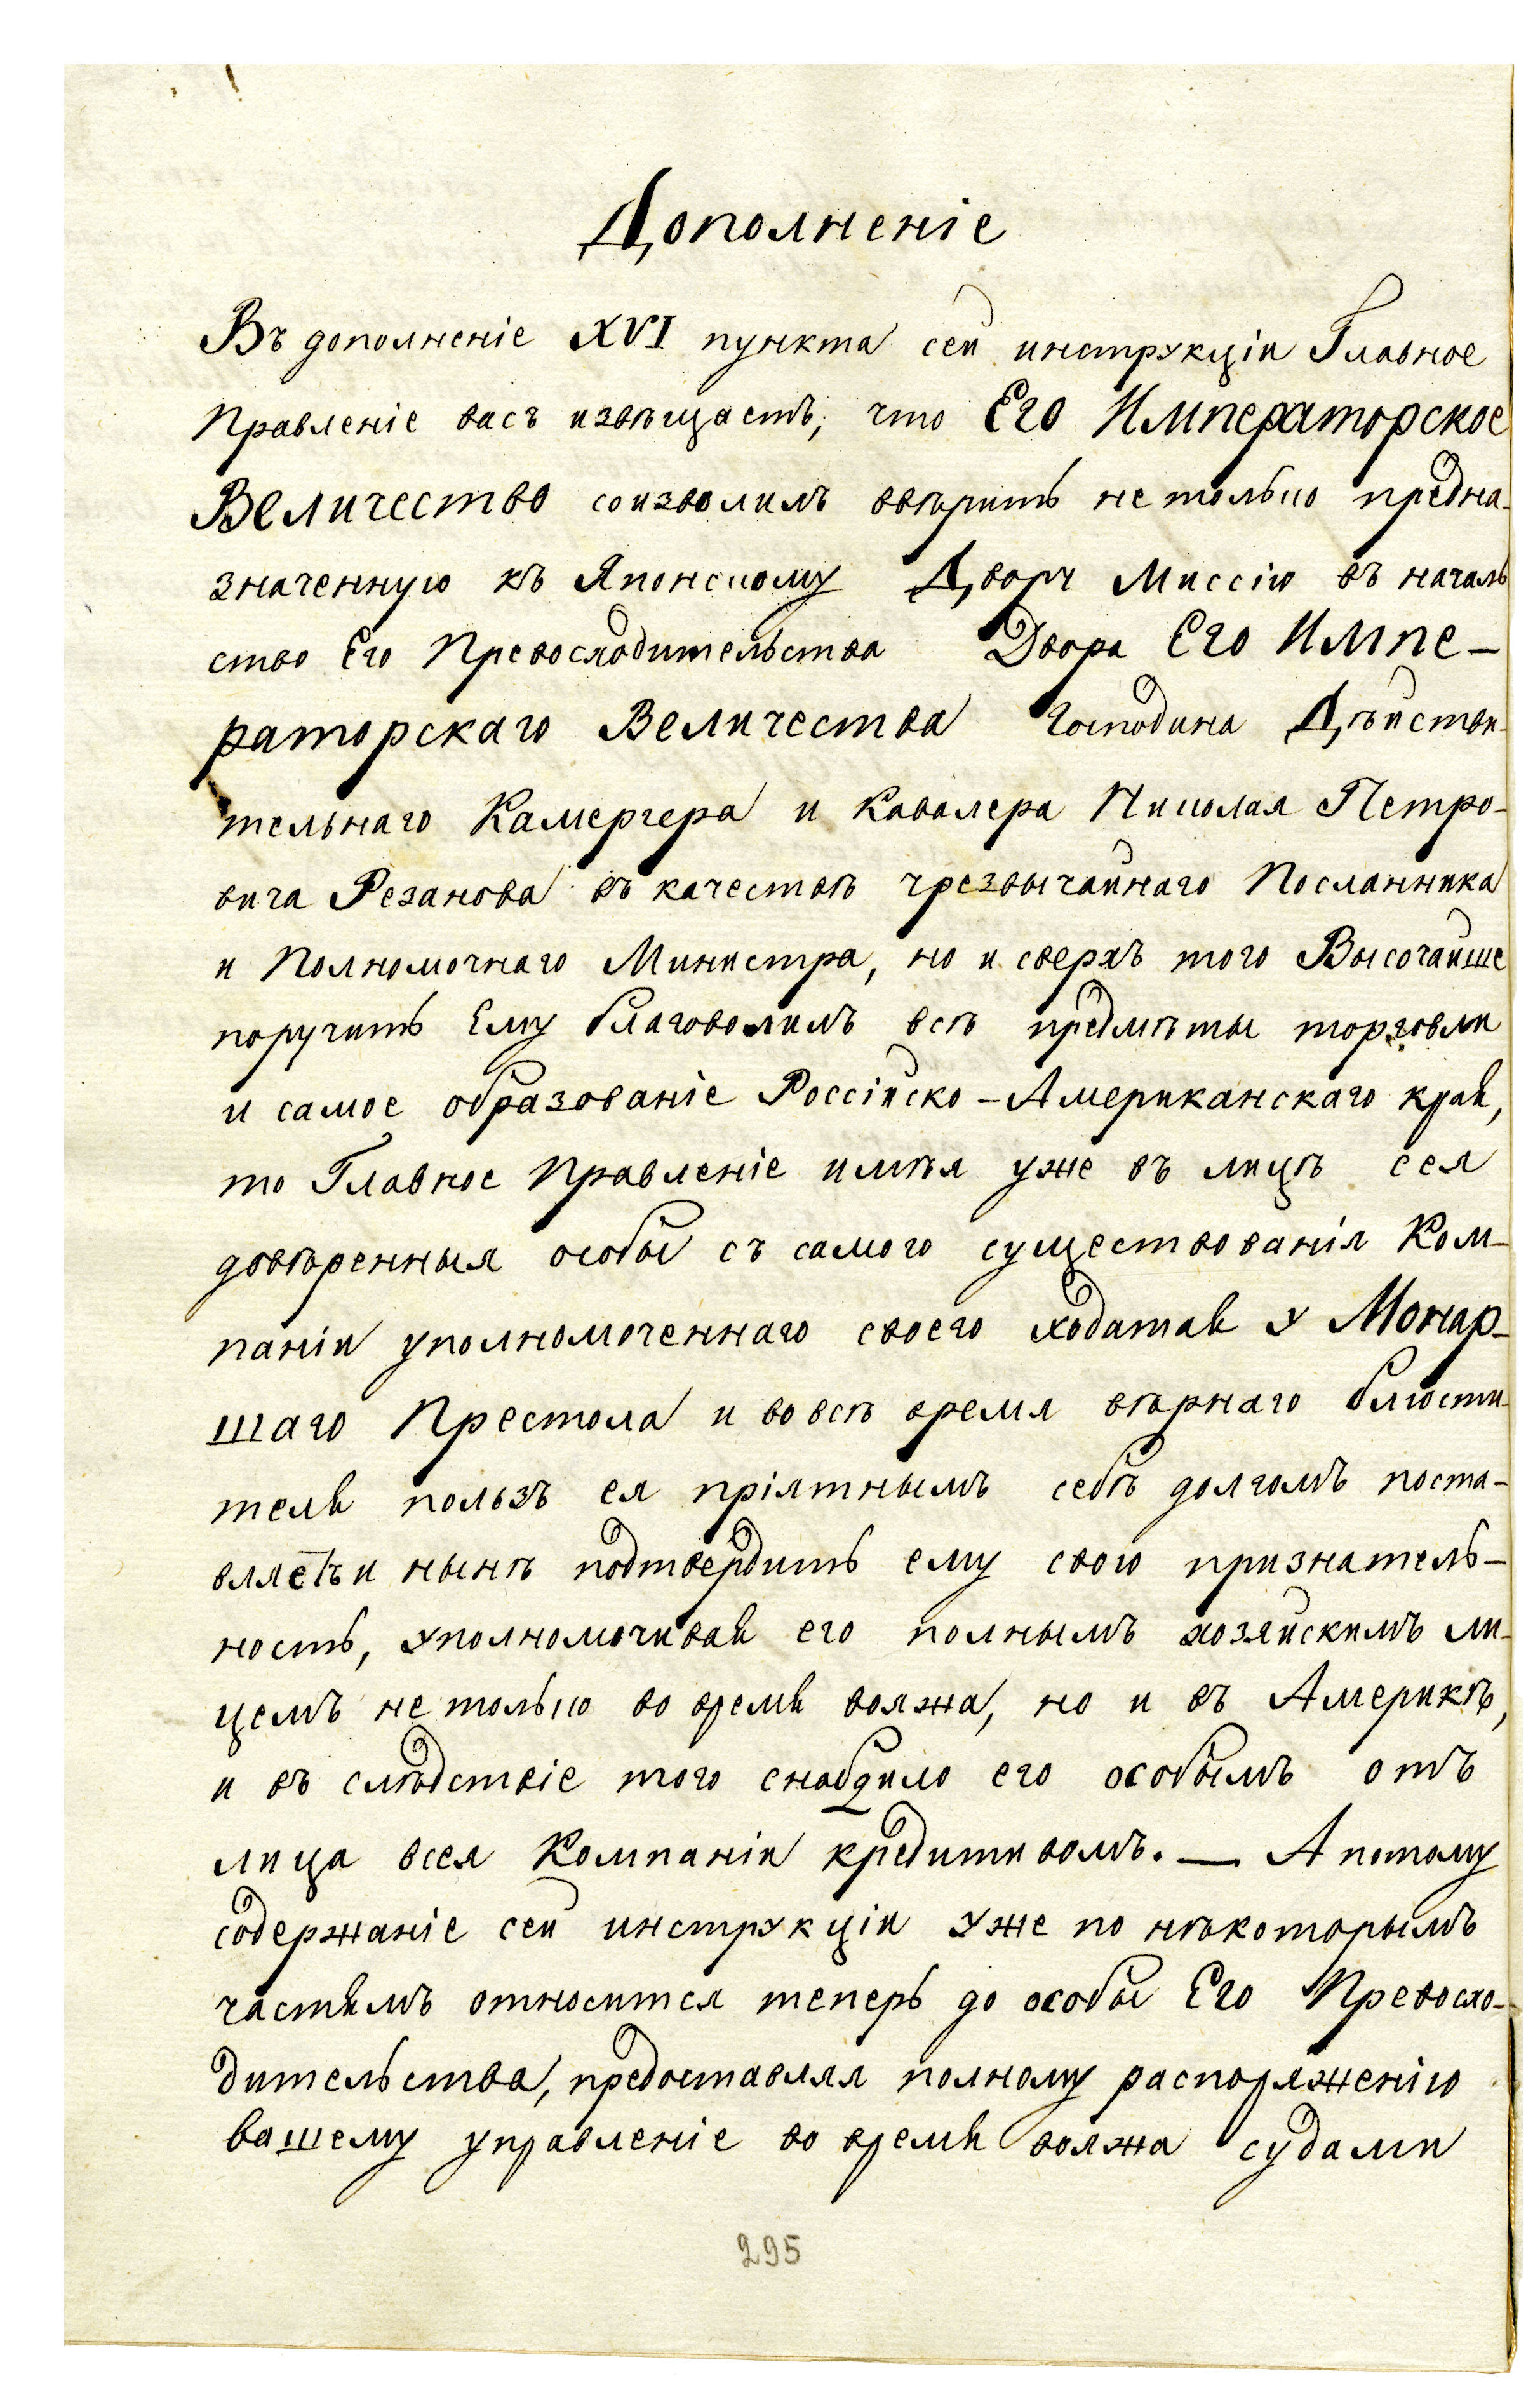 Дополненіе
Въ дополненіе XVI пункта сей инструкціи Главное
Правленіе васъ извѣщаетъ, что Его Императорское
Величество соизволилъ ввѣрить не только предна-
значенную къ Японскому Двору Миссію въ началь
ство Его Превосходительства Двора Его Импе-
раторскаго Величества Господина Дѣйстви-
тельнаго Камергера и Кавалера Николая Петро-
вича Резанова въ качествѣ чрезвычайнаго Посланника
и Полномочнаго Министра, но и сверхъ того Высочайше
поручить Ему благоволилъ всѣ предмѣты торговли
и самое образованіе Россійско-Американскаго края,
то Главное Правленіе имѣя уже въ лицѣ сея
довѣренныя особы съ самого существованія Ком-
паніи уполномоченнаго своего ходатая у Монар-
шаго Престола и во всѣ время вѣрнаго блюсти-
теля пользъ ея пріятнымъ себѣ долгомъ поста-
вляетъ и нынѣ подтвердить ему свою признатель-
ность, уполномочивая его полнымъ хозяйскимъ ли-
цемъ не только во время вояжа, но и въ Америкѣ,
и въ слѣдствіе того снабдило его особымъ отъ
лица всея Компаніи кредитивомъ. — А потому
содержаніе сей инструкціи уже по нѣкоторымъ
частямъ относится теперь до особы Его Превосхо-
дительства, предоставляя полному распоряженію
вашему управленіе во время вояжа судами
295